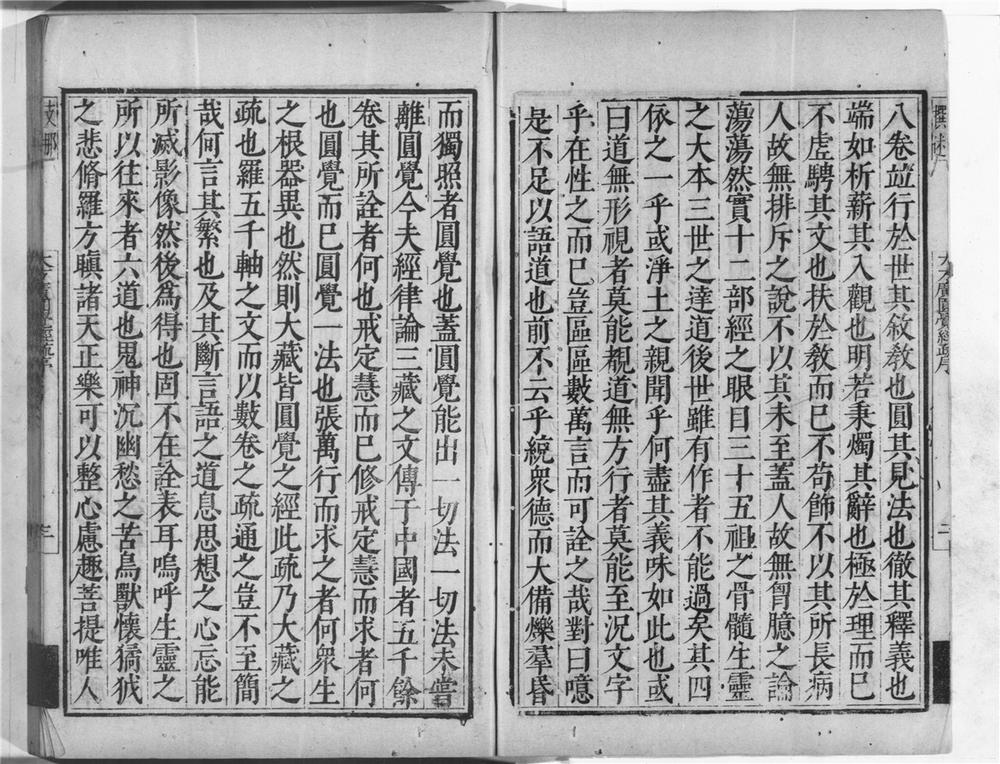 八卷竝行於世其敘教也圓其見法也徹其釋義也
端如析薪其入觀也明若秉燭其辭也極於理而已
不虛騁其文也扶於教而已不苟飾不以其所長病
人故無排斥之說不以其未至蓋人故無胷臆之論
蕩蕩然實十二部經之眼目三十五祖之骨髓生靈
之大本三世之達道後世雖有作者不能過矣其四
依之一乎或淨土之親聞乎何盡其義味如此也或
曰道無形視者莫能覩道無方行者莫能至況文字
乎在性之而已豈區區數萬言而可詮之哉對曰噫
是不足以語道也前不云乎統衆德而大備爍羣昏
而獨照者圓覺也蓋圓覺能出一切法一切法未嘗
離圓覺今夫經律論三藏之文傳于中國者五千餘
卷其所詮者何也戒定慧而已修戒定慧而求者何
也圓覺而已圓覺一法也張萬行而求之者何衆生
之根器異也然則大藏皆圓覺之經此疏乃大藏之
疏也羅五千軸之文而以數卷之疏通之豈不至簡
哉何言其繁也及其斷言語之道息思想之心忘能
所滅影像然後爲得也固不在詮表耳嗚呼生靈之
所以往來者六道也鬼神沉幽愁之苦鳥獸懷獝狘
之悲脩羅方瞋諸天正樂可以整心慮趣菩提唯人